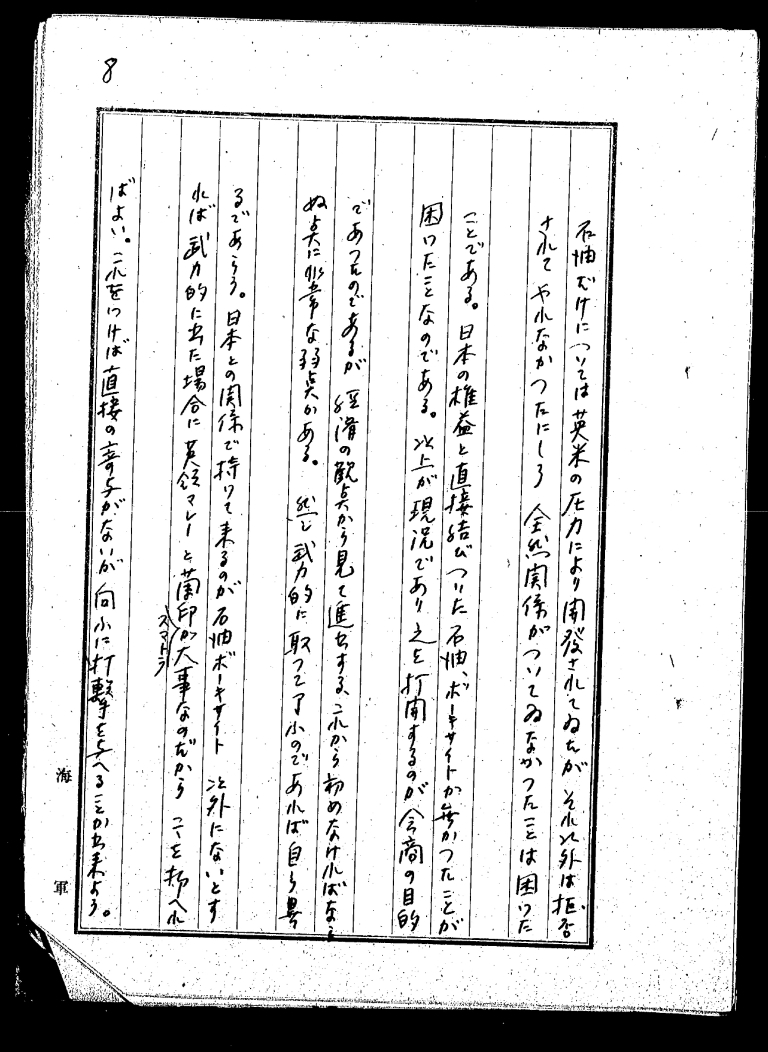 8
石油だけについては英米の圧力により開発されてゐたが それ以外は拒否
されて やれなかつたにしろ 全然関係がついてゐなかつたことは困つた
ことである。日本の権益と直接結びついた石油、ボーキサイトが無かつたことが
困つたことなのである。以上が現況であり之を打開するのが会商の目的
であつたのであるが 経済の観点から見て進出する、これから初めなければなら
ぬ点に非常な弱点がある。然し武力的に取つて了ふのであれば自ら異
るであらう。日本との関係で持つて来るのが石油ボーキサイト 以外にないとす
れば 武力的に出た場合に英領マレーと蘭印が大事なのだから こゝを押へれ
スマトラ
ばよい。これをつけば直接の寄与がないが 向ふに打撃を与へることが出来よう。
海軍